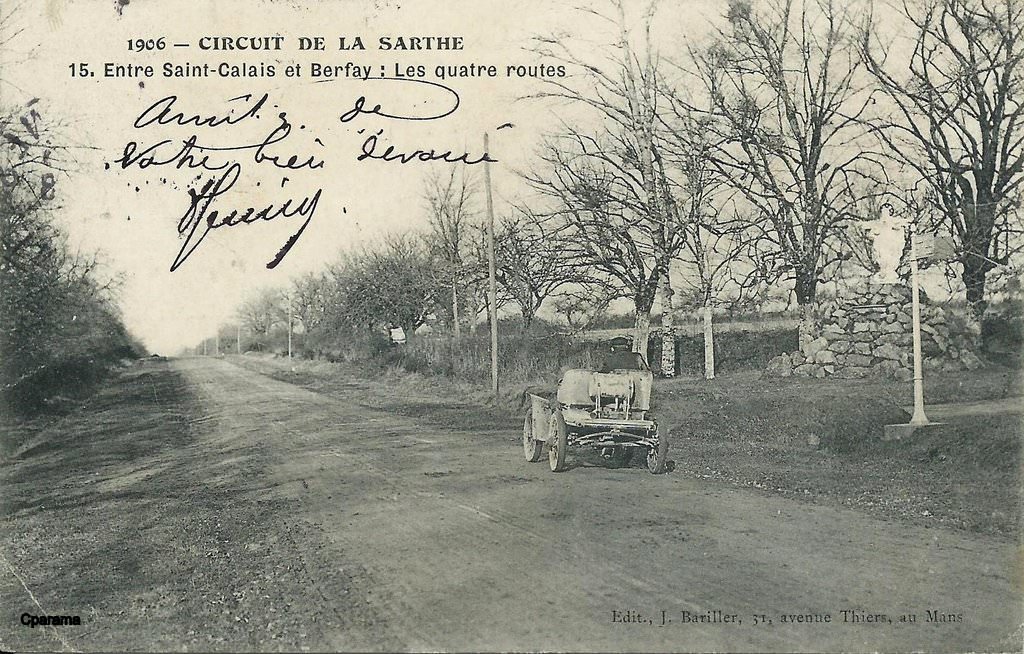 1906 – CIRCUIT DE LA SARTHE
15. Entre Saint-Calais et Berfay : Les quatre routes
Amitié de
Votre bien dévoué
Cparama
Edit., J. Bariller, 31, avenue Thiers, au Mans